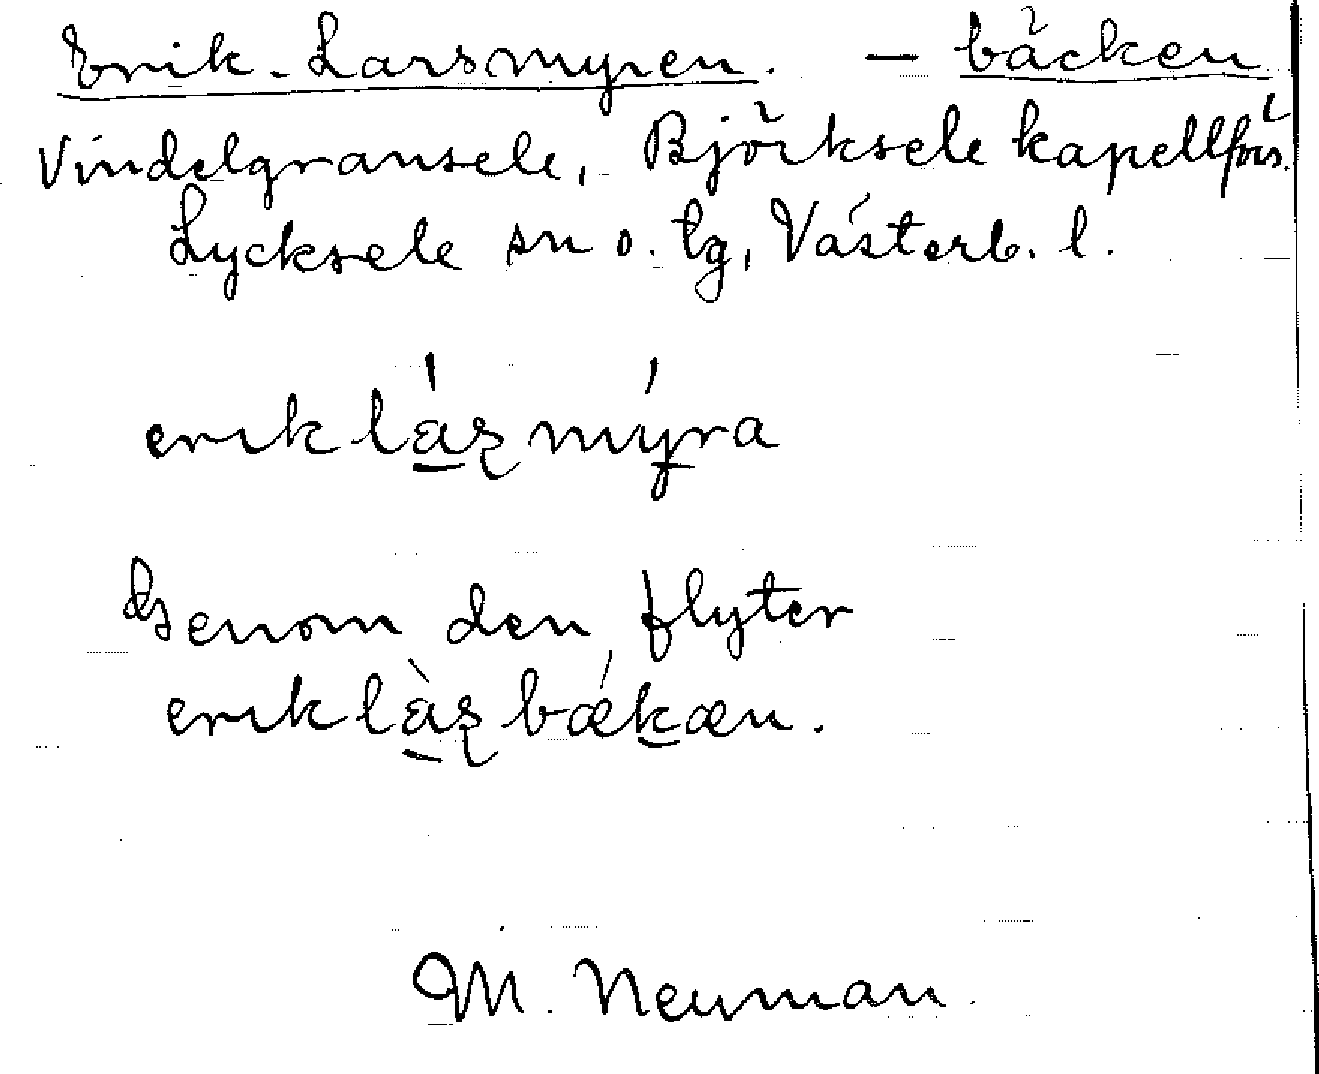 Erik-Larsmyren. – bäcken
Vindelgransele, Björksele kapellförs.
Lycksele sn o. tg, Västerb. l.
erik lázmýra
Genom den flyter
erik làzbǽkæn.
M. Neuman.